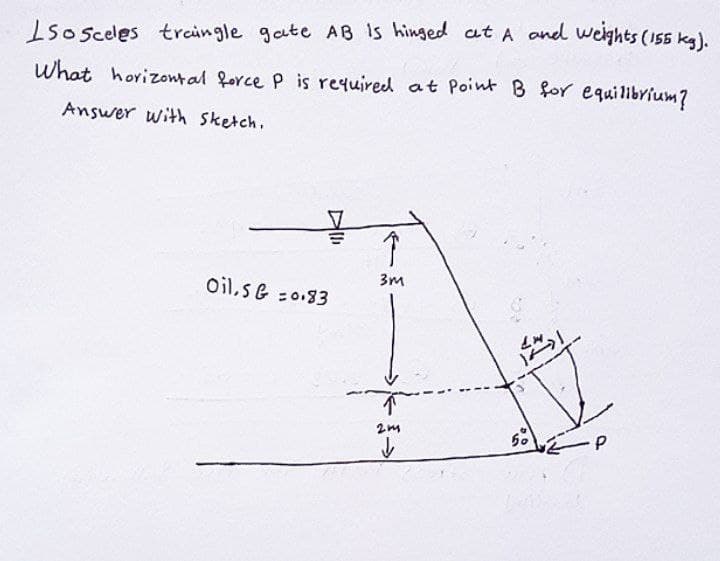 Isosceles traingle gate AB Is hinged at A and weights (155 kg).
What horizontal force P is required at Point B for equilibrium?
Answer with sketch.
3m
Oil, SG = 0.83
1m
2m
50°
P